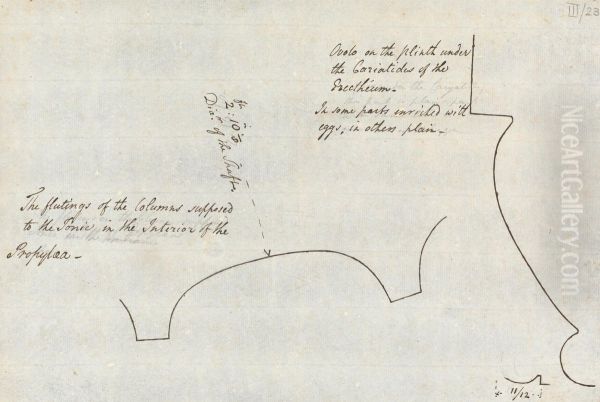 III/23
Ovolo on the plinth under
the Cariatides of the
Erectheum-
In some parts enriched with
eggs, in others plain-
2:10
Diar. of the Shafts
The flutings of the Columns supposed
to the Ionic, in the Interior of the
Propylæa-
11/12
NiceArtGallery.com